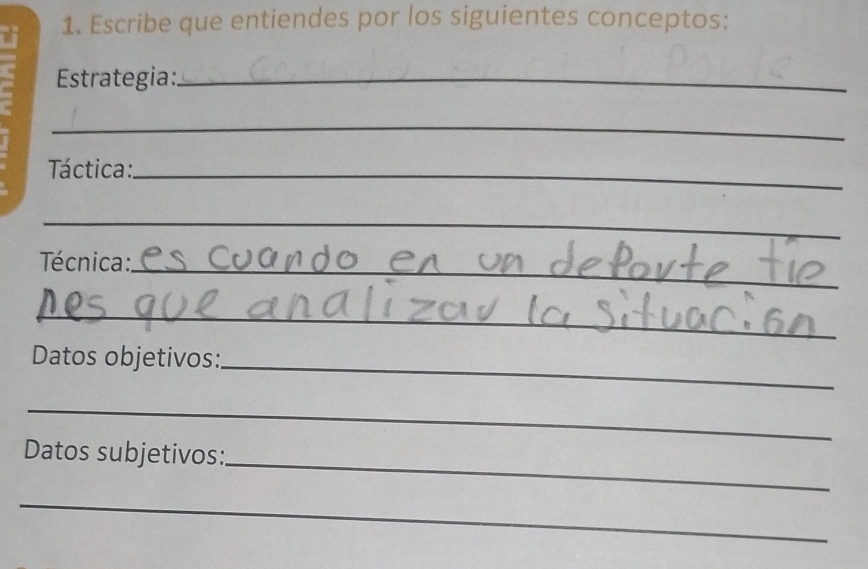 1. Escribe que entiendes por los siguientes conceptos:
Estrategia:
Táctica:
Técnica: es cuando en un deporte tie
nes que analizar la situación
Datos objetivos:
Datos subjetivos: